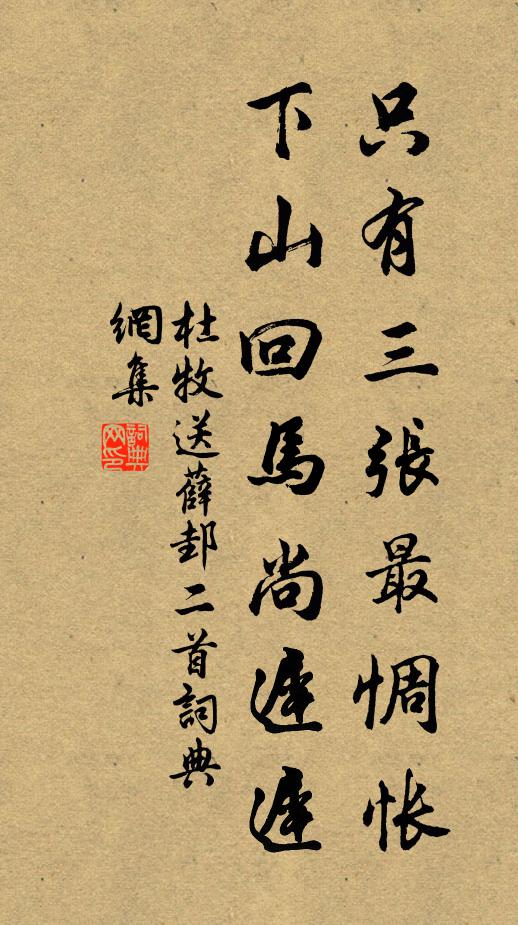 只有三張最惆怅
下山回馬尚遲遲
杜牧送薛邽二首詞典
網集
詞典网印